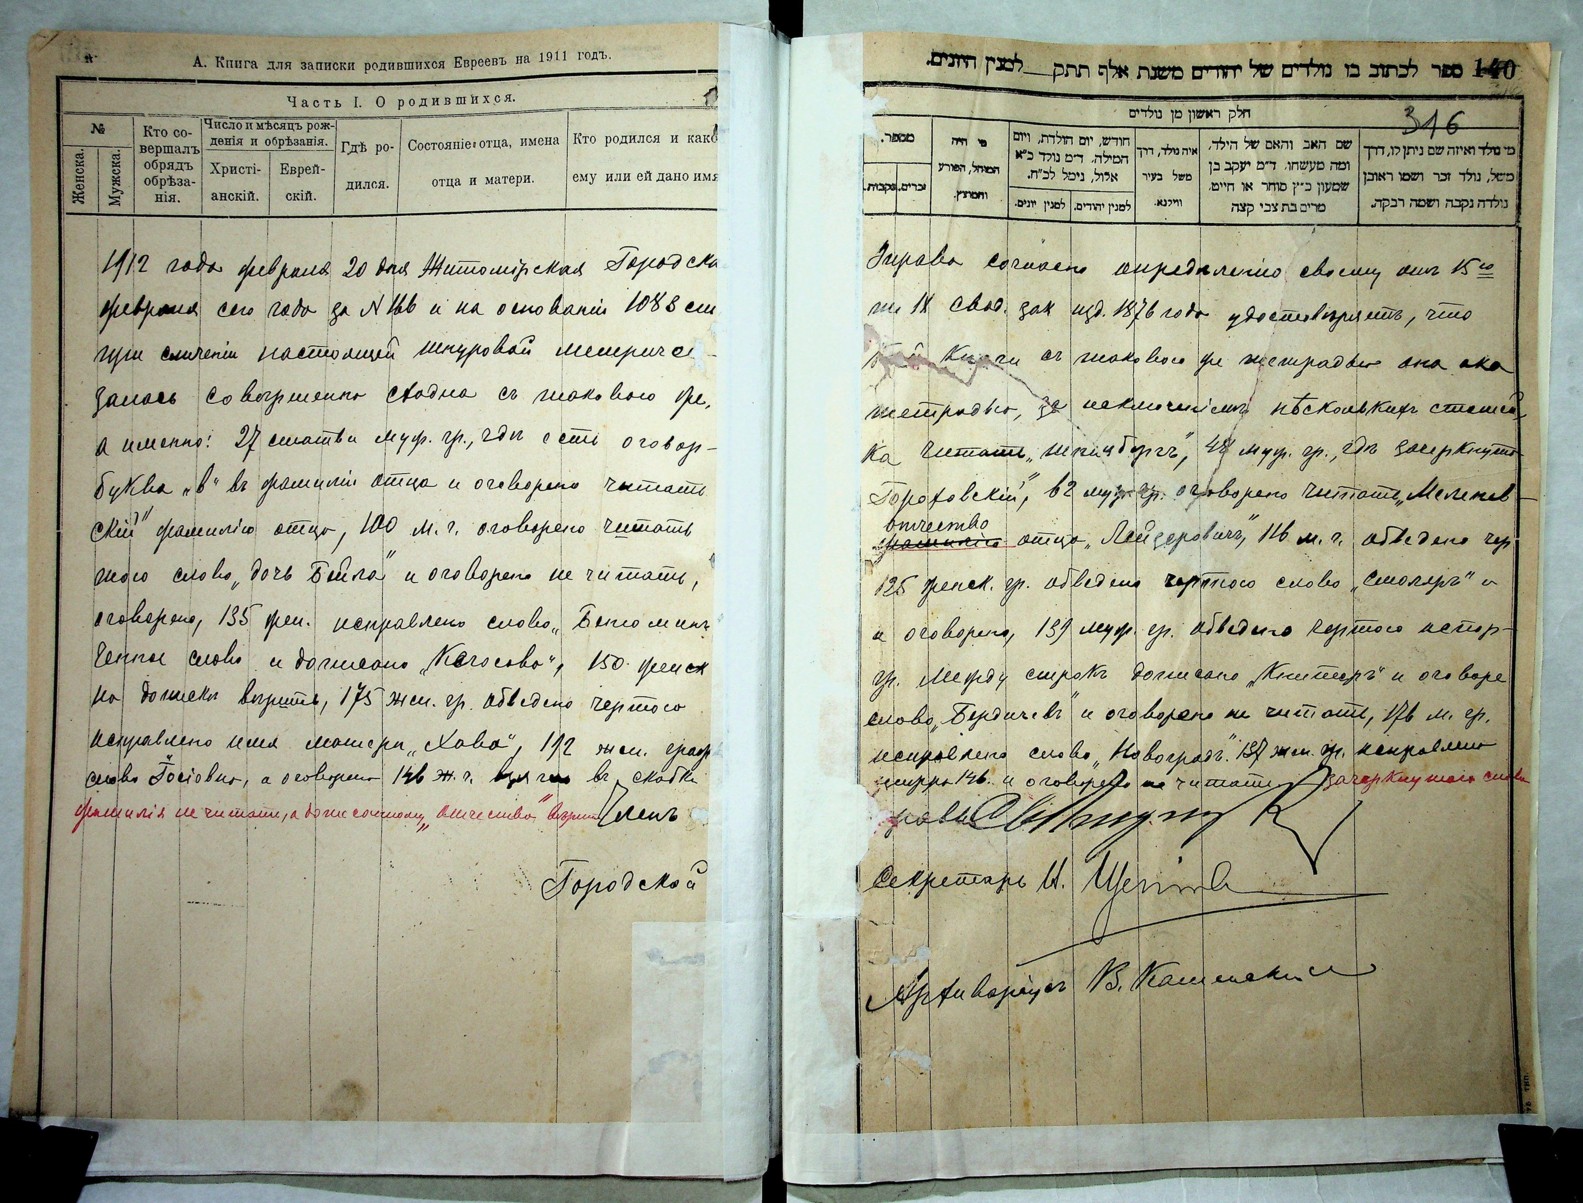 А. Книга для записки родившихся Евреевъ на 1911 годъ.
Часть I. О родившихся.
№
Женска.
Мужска.
Кто со-
вершалъ
обрядъ
обрѣза-
нія.
Число и мѣсяцъ рож-
денія и обрѣзанія.
Христі-
анскій.
Еврей-
скій.
Гдѣ ро-
дился.
Состояніе отца, имена
отца и матери.
Кто родился и како
ему или ей дано имя
1912 года февраля 20 дня Житомірская Городска
февраля сего года за N 166 и на основаніи 1083 ст
при сличеніи настоящей шнуровой метричес
залась совершенно сходна съ таковою же,
а именно: 27 статьи муж. гр., гдѣ есть оговор-
буква „в" въ фамиліи отца и оговорено читать
скій" фамилію отца, 100 м. г. оговорено читать
тою слово „дочь Бейла" и оговорено не читать,
оговорено, 135 жен. исправлено слово
слово и дописано 150 женск
но дописки вѣрить, 175 жен. гр. обведено чертою
исправлено имя матери „Хава", 192 жен. граф
слово а оговорено 146 ж. г. въ скобки
фамилія не читать, а дописанному „отчество" вѣрить Членъ
Городской
ספר לכתוב בו נולדים של יהודים משנת אלף תתק__ למנין היונים.
140
316
חלק ראשון מן נולדים
מספר.
זכרים.
נקבות.
מי היה
המוהל, הפורע
והמוצץ.
חודש, יום הולדת, ויום
המילה. ד״מ נולד כ״א
אלול, נימל לכ״ח.
למנין יונים.
למנין יהודים.
איה נולד, דרך
משל בעיר
ווילנא.
שם האב והאם של הילד,
ומה מעשהו. ד״מ יעקב בן
שמעון כ״ץ סוחר או חייט.
מרים בת צבי קצה
מי נולד ואיזה שם ניתן לו, דרך
משל, נולד זכר ושמו ראובן
נולדה נקבה ושמה רבקה.
Управа согласно опредѣленію своему отъ 15го
т. IX Свод. зак изд. 1876 года удостовѣряетъ, что
Книги съ таковою же тетрадью она ока
тетрадью, за исключеніемъ нѣсколькихъ статей,
ка читать „Гинцбургъ", 48 муж. гр., гдѣ зачеркнута
Гороховскій", 62 муж. гр. оговорено читать
отчество
фамилію отца „Лейзеровичъ", 116 м. г. обведено чер
125 женск. гр. обведено чертою слово „столяръ" и
и оговорено, 139 муж. гр. обведено чертою
гр. Между строкъ дописано и оговоре
слово „Бердичевъ" и оговорено не читать, 176 м. гр.
исправлено слово „Новоградъ" 137 жен. гр. исправлено
цифра 146. и оговорено не читать зачеркнутаго слова
Секретарь И.
Архиваріусъ В. Каменскій